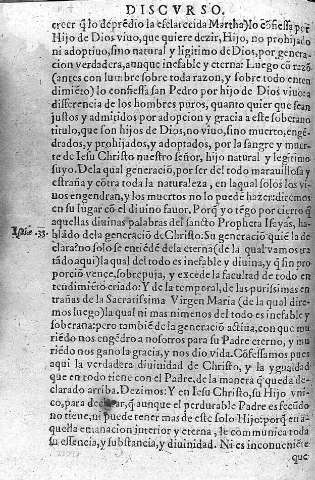 DISCVRSO.
creer q̃ lo depredio la esclarecida Martha) lo cõfiessa por
Hijo de Dios viuo, que quiere dezir, Hijo, no prohijado
ni adoptiuo, sino natural y ligitimo de Dios, por genera-
cion verdadera, aunque inefable y eterna: Luego cõ razõ
(antes con lumbre sobre toda razon, y sobre todo enten
dimiẽto) lo confiessa san Pedro por hijo de Dios viuo: a
differencia de los hombres puros, quanto quier que sean
justos y admitidos por adopcion y gracia a este soberano
titulo, que son hijos de Dios, no viuo, sino muerto, engẽ-
drados, y prohijados, y adoptados, por la sangre y muer-
te de Iesu Christo nuestro señor, hijo natural y legitimo
suyo. De la qual generaciõ, por ser del todo marauillosa y
estraña y cõtra toda la naturaleza, en la qual solos los vi-
uos engendran, y los muertos no lo puede hazer: diremos
en su lugar cõ el diuino fauor. Porq̃ yo tẽgo por cierto q̃
aquellas diuinas palabras del sancto Propheta Isayas, hã-
Isaie. 53. blado de la generaciõ de Christo. Su generaciõ quiẽ la de
clara? no solo se entiẽdẽ de la eterna (de la qual vamos tra
tãdo aqui) la qual del todo es inefable y diuina, y q̃ sin pro
porciõ vence, sobrepuja, y excede la facultad de todo en
tendimiẽto criado: Y de la temporal, de las purissimas en
trañas de la Sacratissima Virgen Maria (de la qual dire-
mos luego) la qual ni mas ni menos del todo es inefable y
soberana: pero tambiẽ de la generaciõ actiua, con que mu
riẽdo nos engẽdro a nosotros para su Padre eterno, y mu
riẽdo nos gano la gracia, y nos dio vida. Cõfessamos pues
aqui la verdadera diuinidad de Christo, y la ygualdad
que en todo tiene con el Padre, de la manera q̃ queda de-
clarado arriba. Dezimos: Y en Iesu Christo, su Hijo vni-
co, para declarar, q̃ aunque el perdurable Padre es fecũdo
no tiene, ni puede tener mas de este solo Hijo: porq̃ en a-
quella emanacion interior y eterna, le comunica toda
su essencia, y substancia, y diuinidad. Ni es inconueniẽte
que